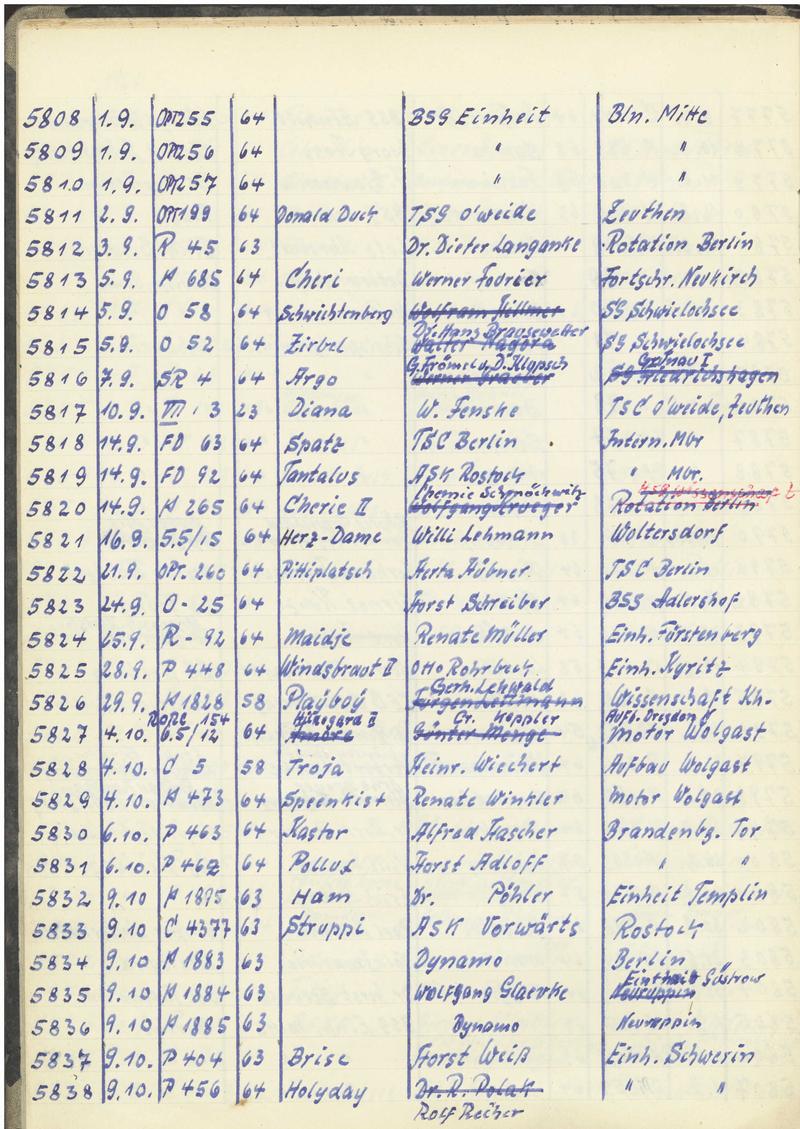 5808 1.9. OPT255 64 BSG Einheit Bln. Mitte
5809 1.9. OPT256 64 " "
5810 1.9. OPT257 64 " "
5811 2.9. OPT199 64 Donald Duck TSG O'weide Zeuthen
5812 3.9. R 45 63 Dr. Dieter Langanke Rotation Berlin
5813 5.9. H 685 64 Cheri Werner Fourier Fortschr. Neukirch
5814 5.9. O 58 64 Schwichtenberg Wolfram Hillmer SG Schwielochsee
Dr. Hans Brausewetter
5815 5.9. O 52 64 Zirbel Walter Nagora SG Schwielochsee
G. Frömel u. D. Klypsch Grünau I
5816 7.9. SR 4 64 Argo Werner SG Friedrichshagen
5817 10.9. III 3 23 Diana W. Fenske TSC O'weide, Zeuthen
5818 14.9. FD 63 64 Spatz TSC Berlin Intern. Mbr
5819 14.9. FD 92 64 Tantalus ASK Rostock " Mbr.
Chemie Schmöckwitz
5820 14.9. H 265 64 Cherie II Wolfgang Krueger Rotation Berlin
5821 16.9. 5,5/15 64 Herz-Dame Willi Lehmann Woltersdorf
5822 21.9. OPT. 260 64 Pittiplatsch Herta Hübner TSC Berlin
5823 24.9. O-25 64 Horst Schreiber BSG Adlershof
5824 25.9. R-92 64 Maidje Renate Müller Einh. Fürstenberg
5825 28.9. P 448 64 Windsbraut II Otto Rohrbeck Einh. Kyritz
Gerh. Lehwald
5826 29.9. H 1828 58 Playboy Jürgen Wissenschaft Kh.
154 Hildegard II Cr. Keppler Aufb. Dresden
5827 4.10. 6.5/12 64 André Günter Menge Motor Wolgast
5828 4.10. C 5 58 Troja Heinr. Wiechert Aufbau Wolgast
5829 4.10. H 473 64 Spreenkist Renate Winkler Motor Wolgast
5830 6.10. P 463 64 Kastor Alfred Hascher Brandenbg. Tor
5831 6.10. P 462 64 Pollux Horst Adloff " "
5832 9.10 H 1895 63 Ham Dr. Pöhler Einheit Templin
5833 9.10 C 4377 63 Struppi ASK Vorwärts Rostock
5834 9.10 H 1883 63 Dynamo Berlin
Einheit Güstrow
5835 9.10 H 1884 63 Wolfgang Glaevke Neuruppin
5836 9.10 H 1885 63 Dynamo Neuruppin
5837 9.10. P 404 63 Brise Horst Weiß Einh. Schwerin
5838 9.10. P 456 64 Holyday Dr. R. Polak " "
Rolf Reiher